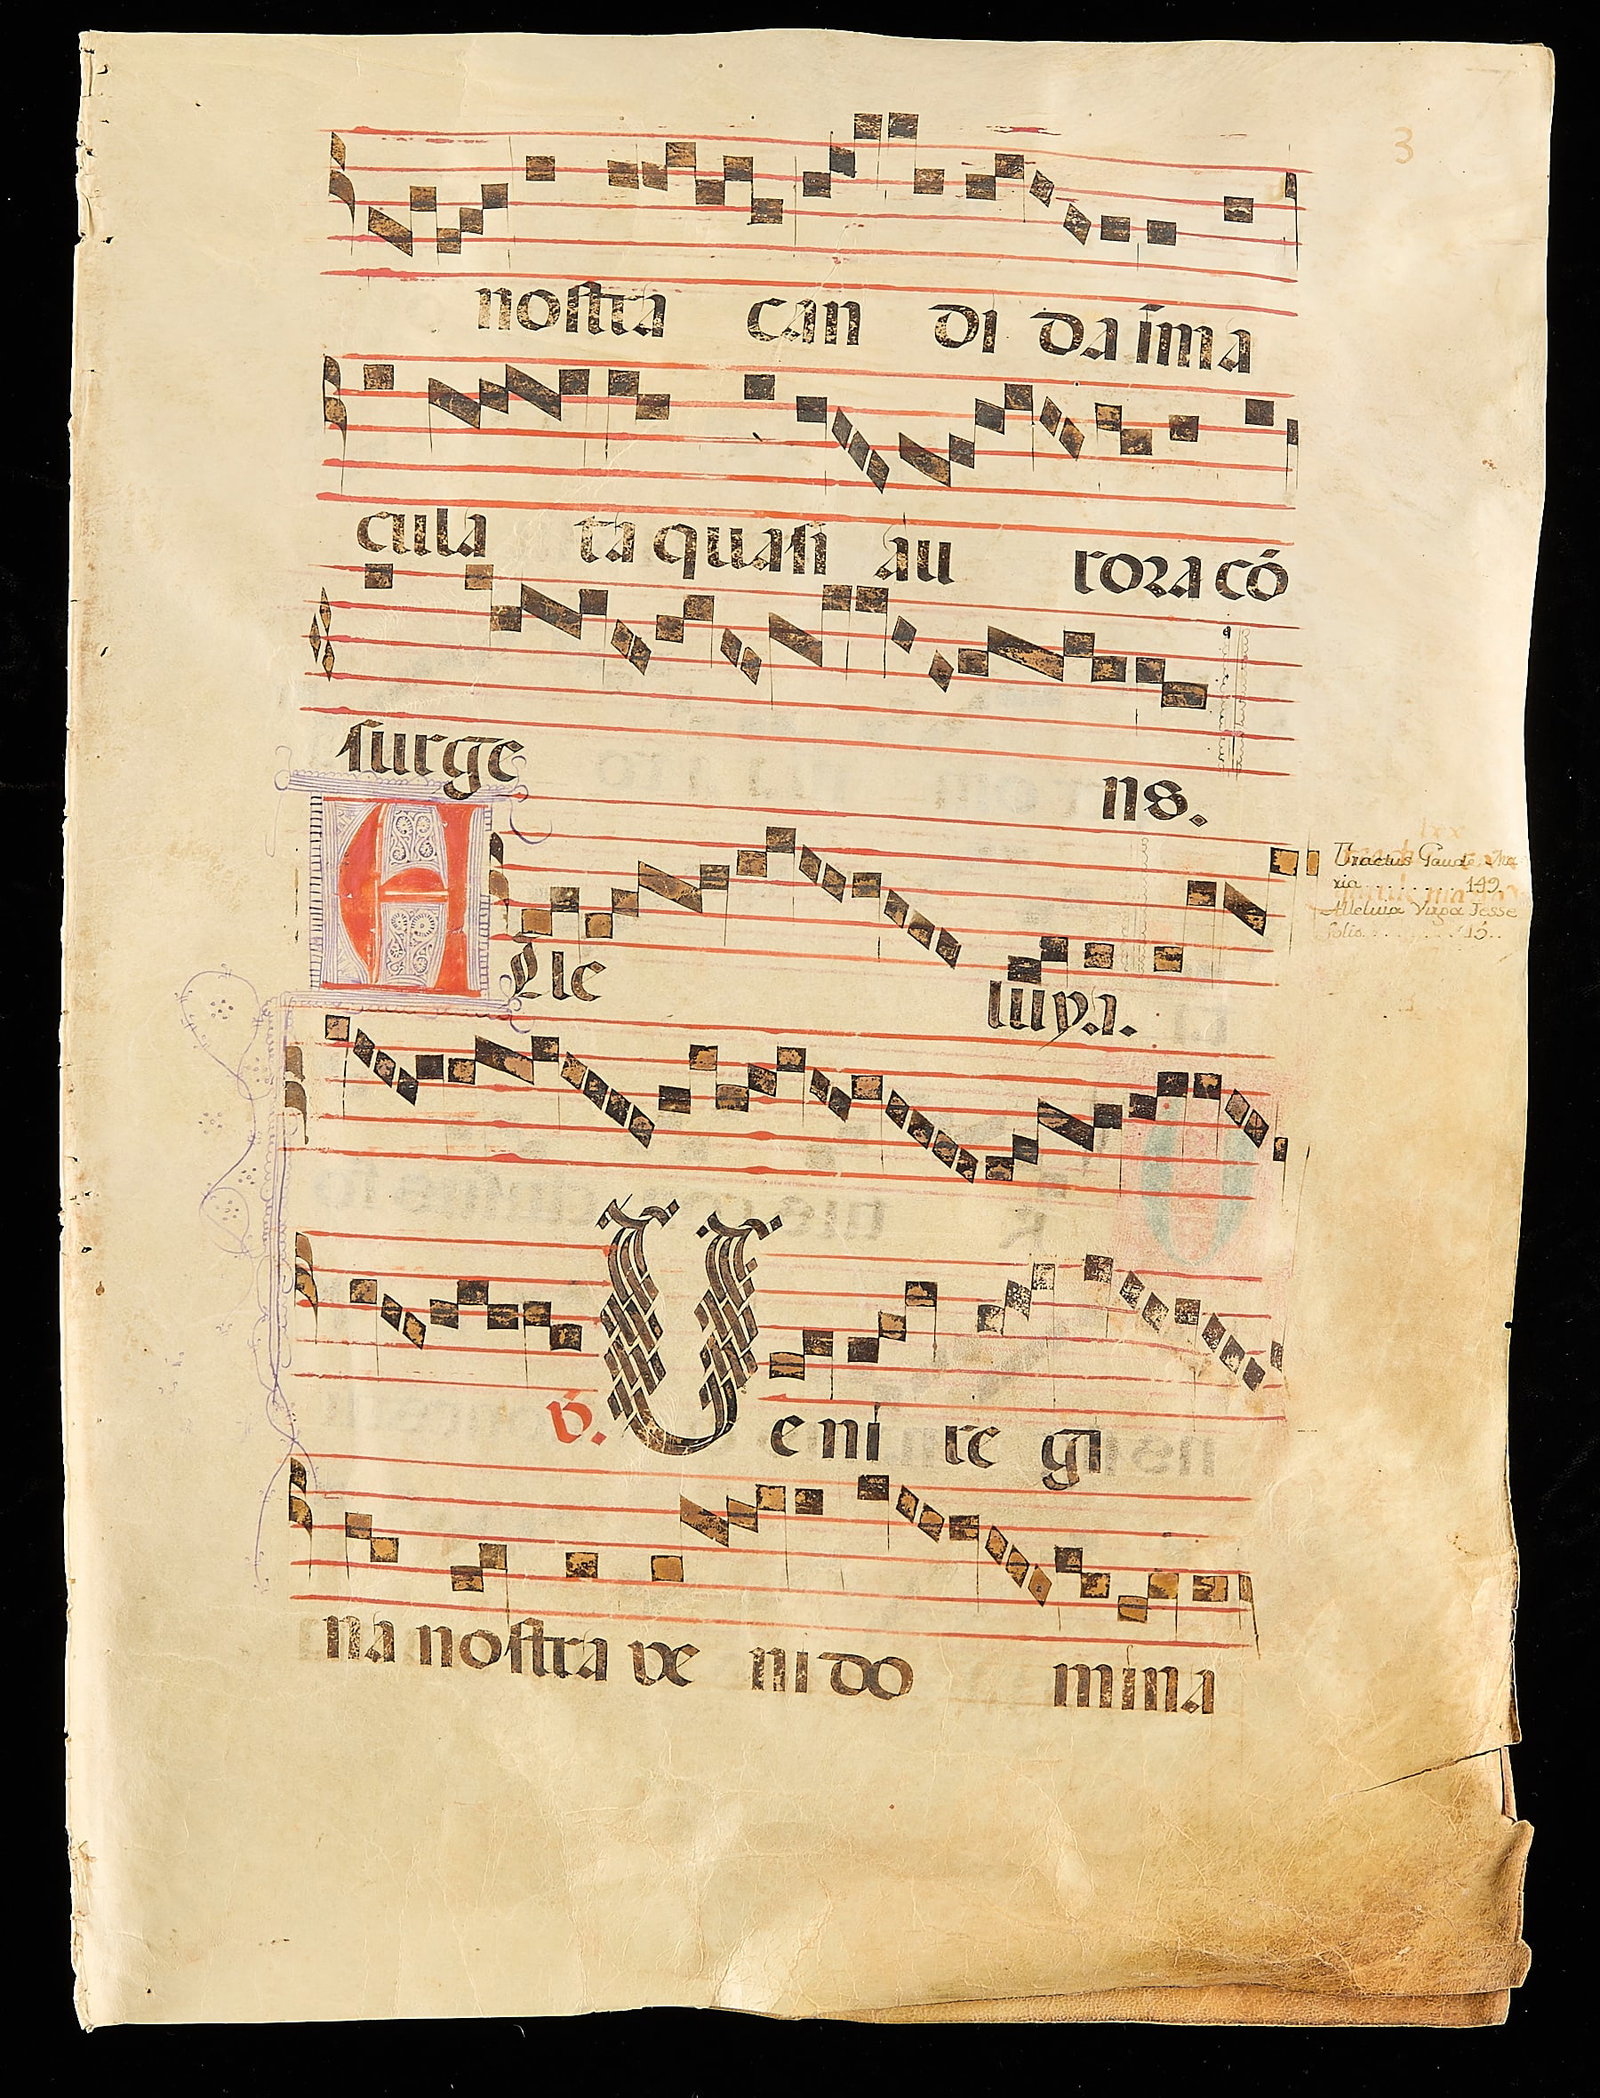 3
nostra can di da ima
cula ta quasi au rora cō
surge ns.
Alle luya.
Tractus Gaude Ma
ria . . . . . . . . 149.
Alleluia Virga Jesse
folio. . . . . . . 15.
℣. Ueni re gi
na nostra ve ni do mina